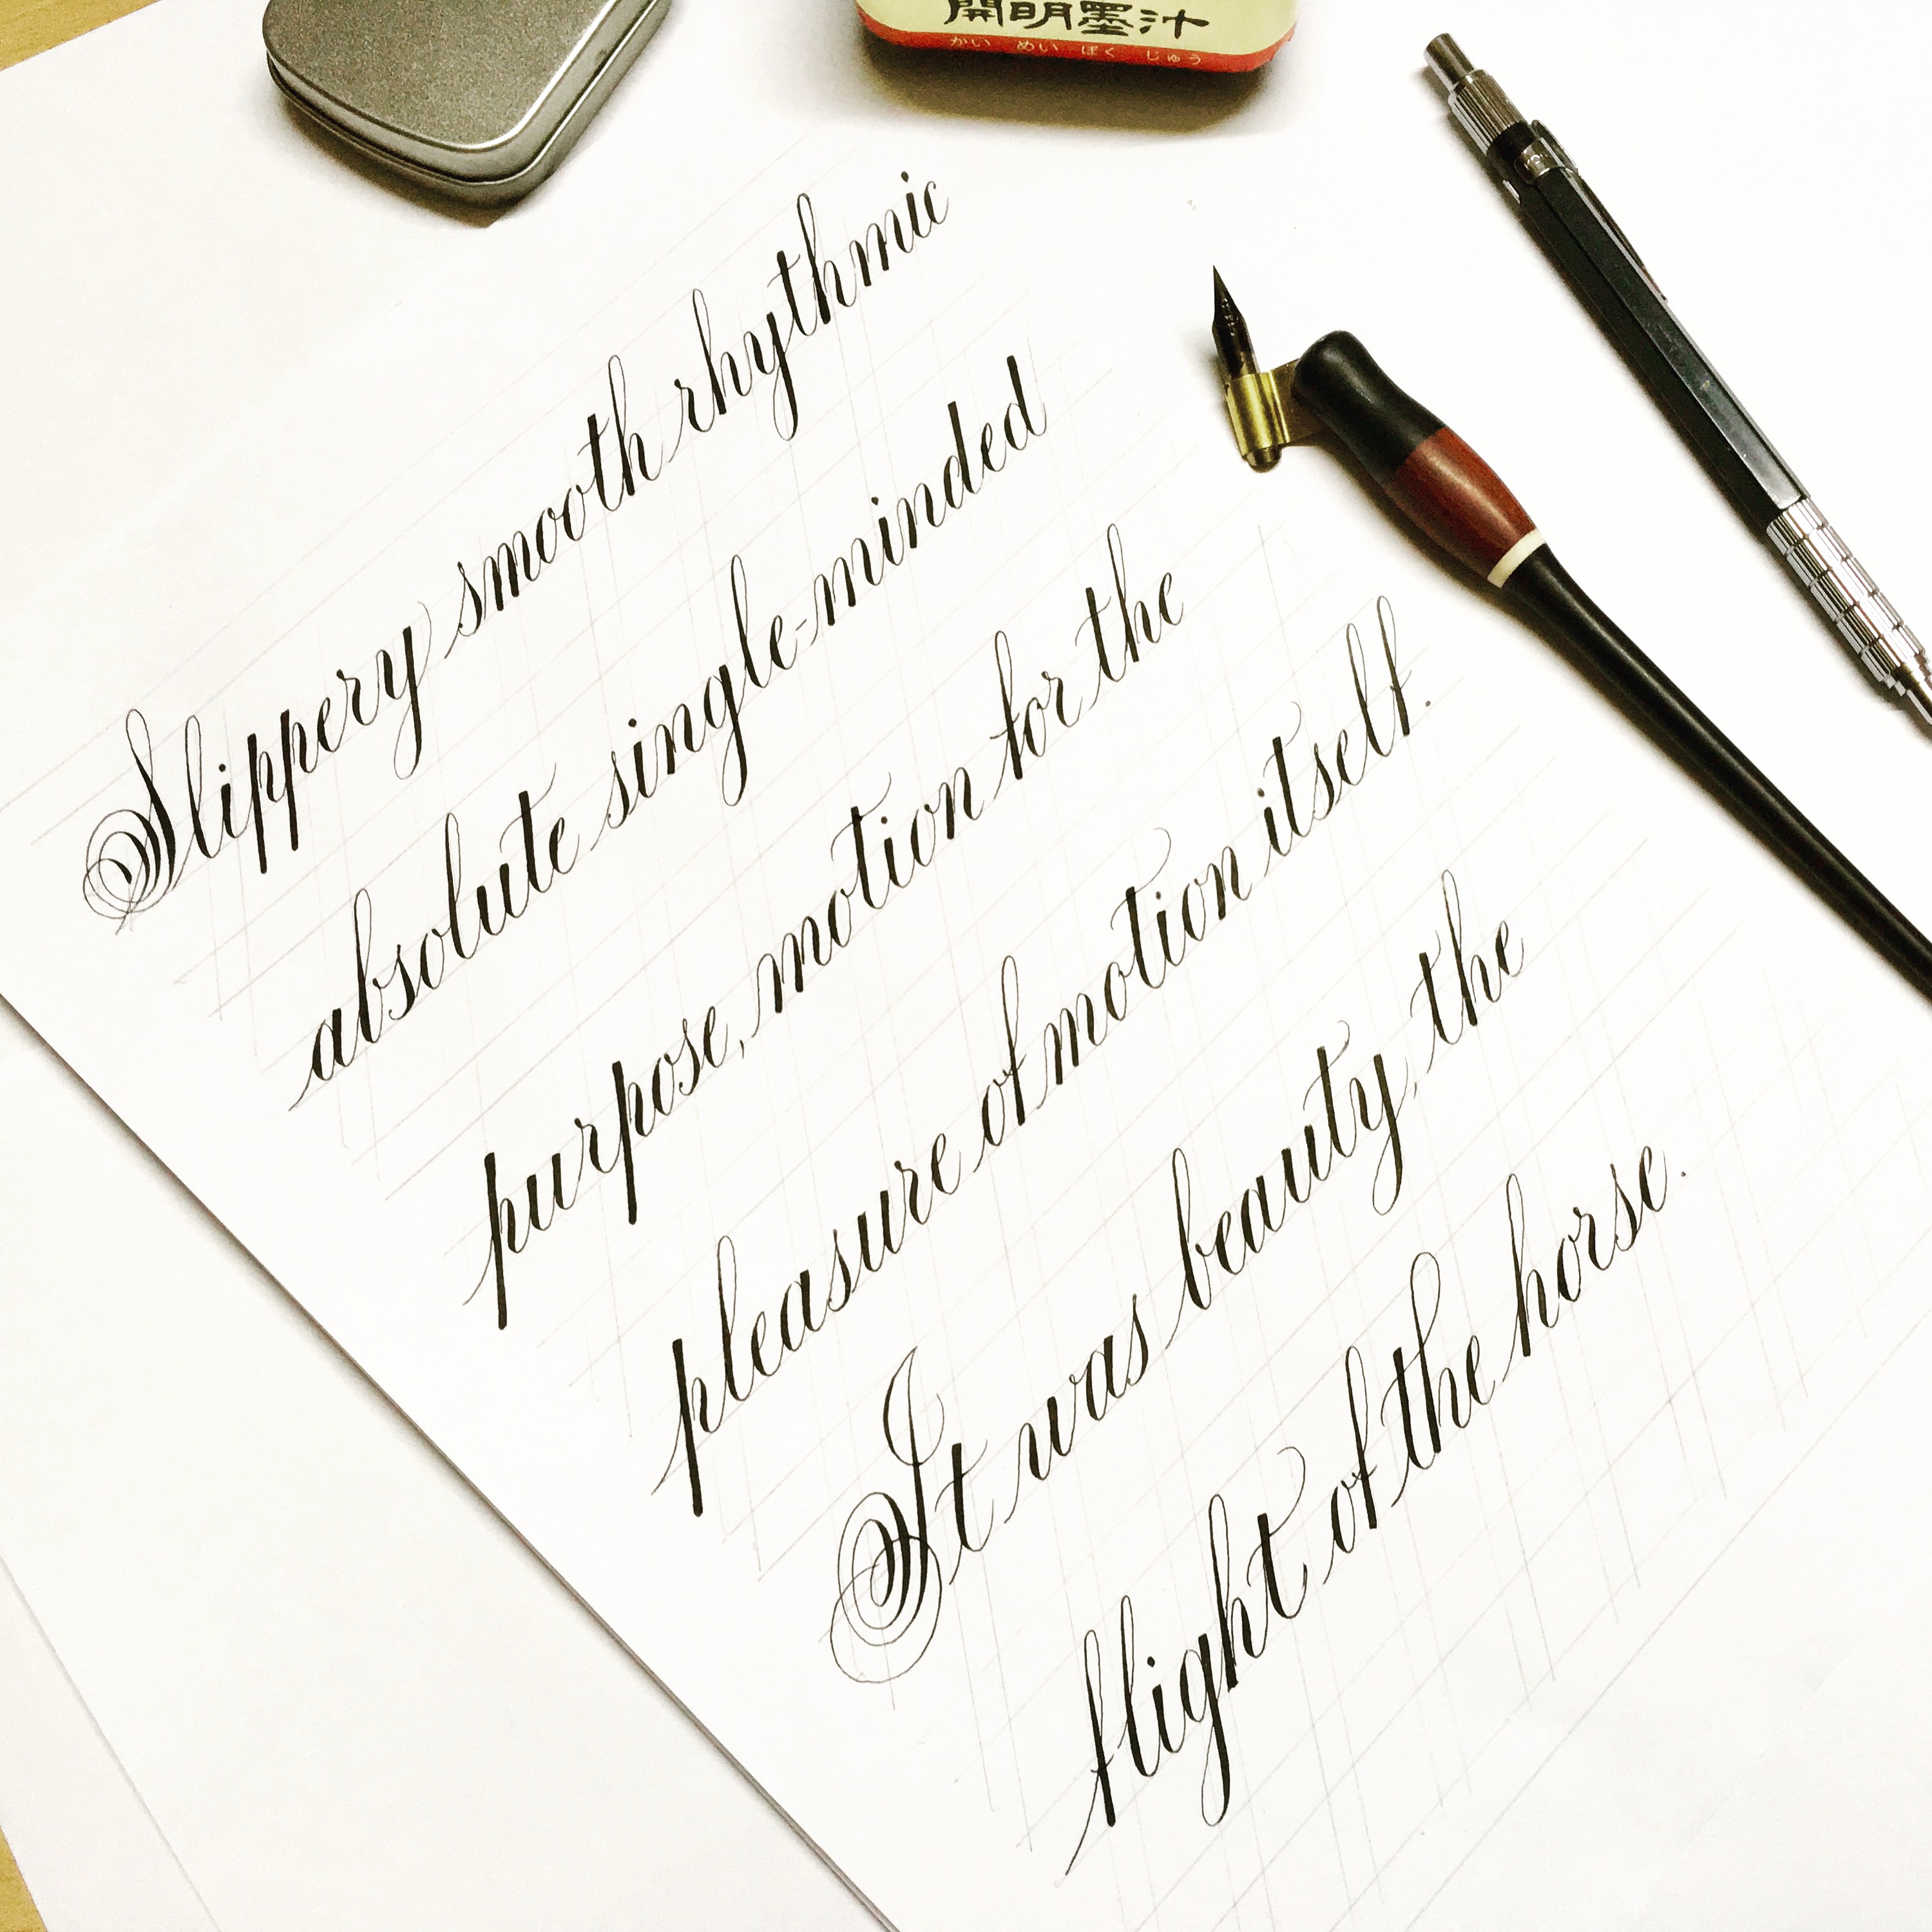 開明墨汁
かい めい ぼく じゅう
Slippery smooth rhythmic
absolute single-minded
purpose, motion for the
pleasure of motion itself.
It was beauty, the
flight of the horse.